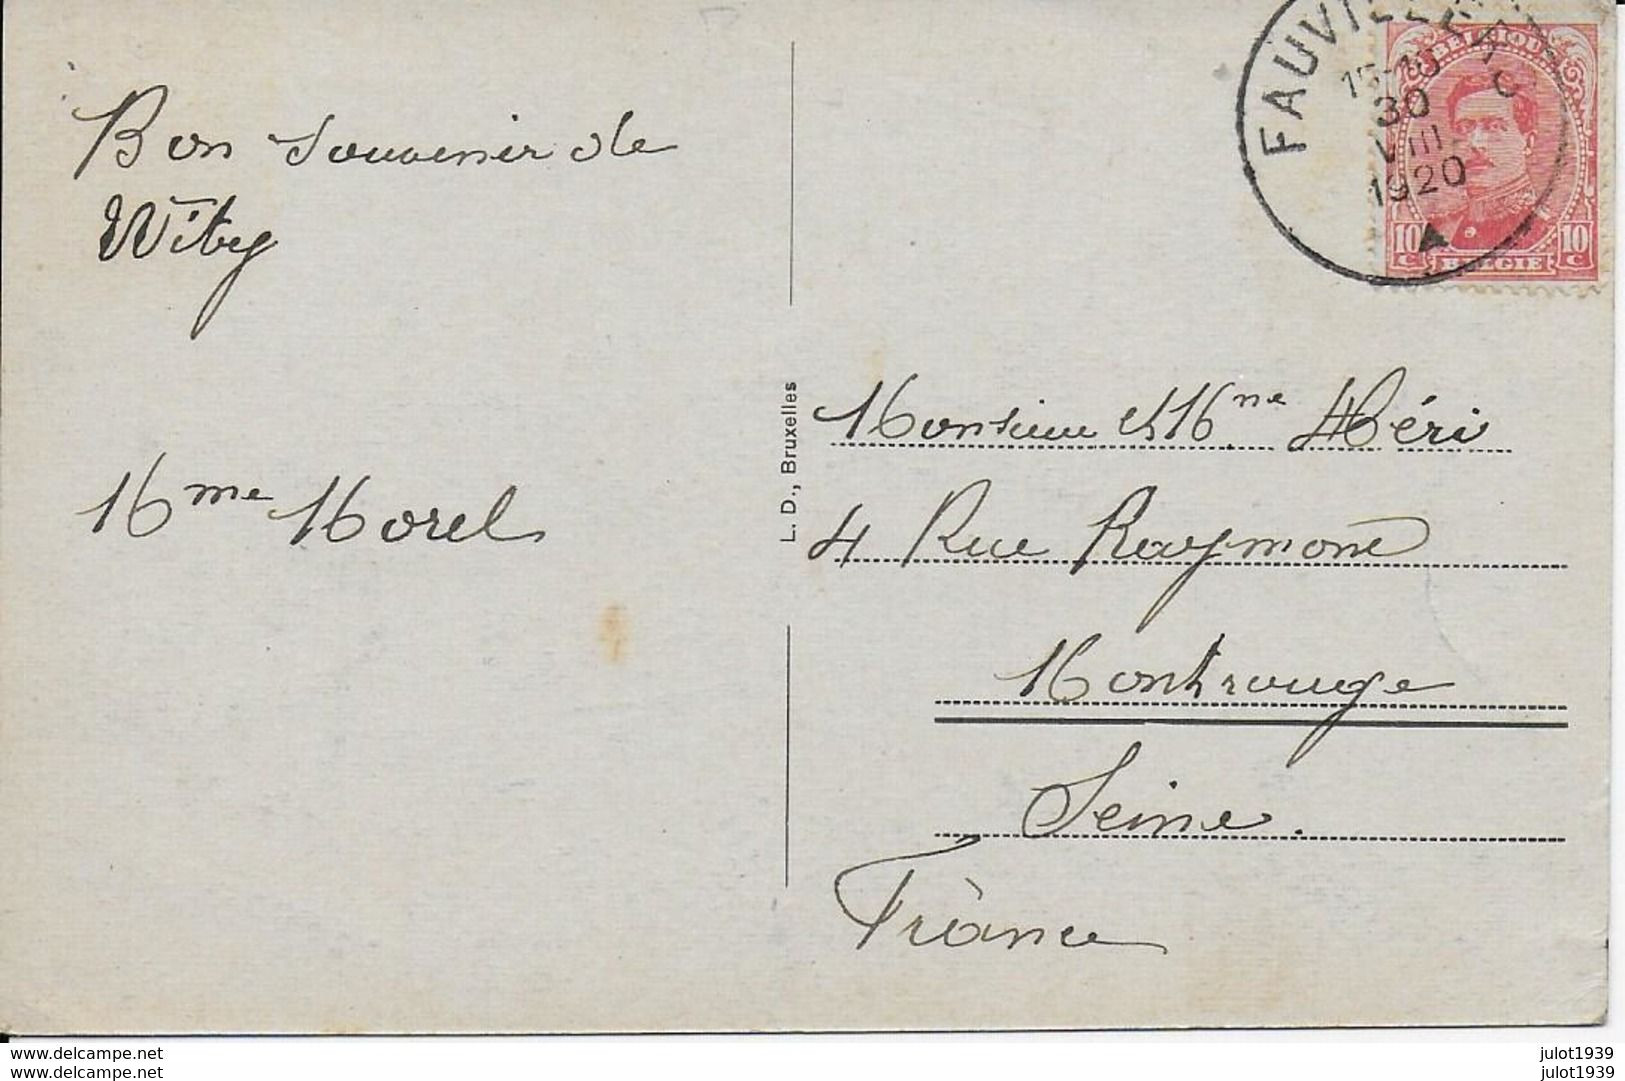 Bon souvenir de
Witry
Mme Morel
L. D., Bruxelles
FAUVILLE
15-16
30
VIII
1920
BELGIQUE
10 c
10 c
BELGIE
Monsieur et Mme Héri
4 Rue Raymond
Montrouge
Seine.
France
www.delcampe.net
www.delcampe.net
julot1939
julot1939